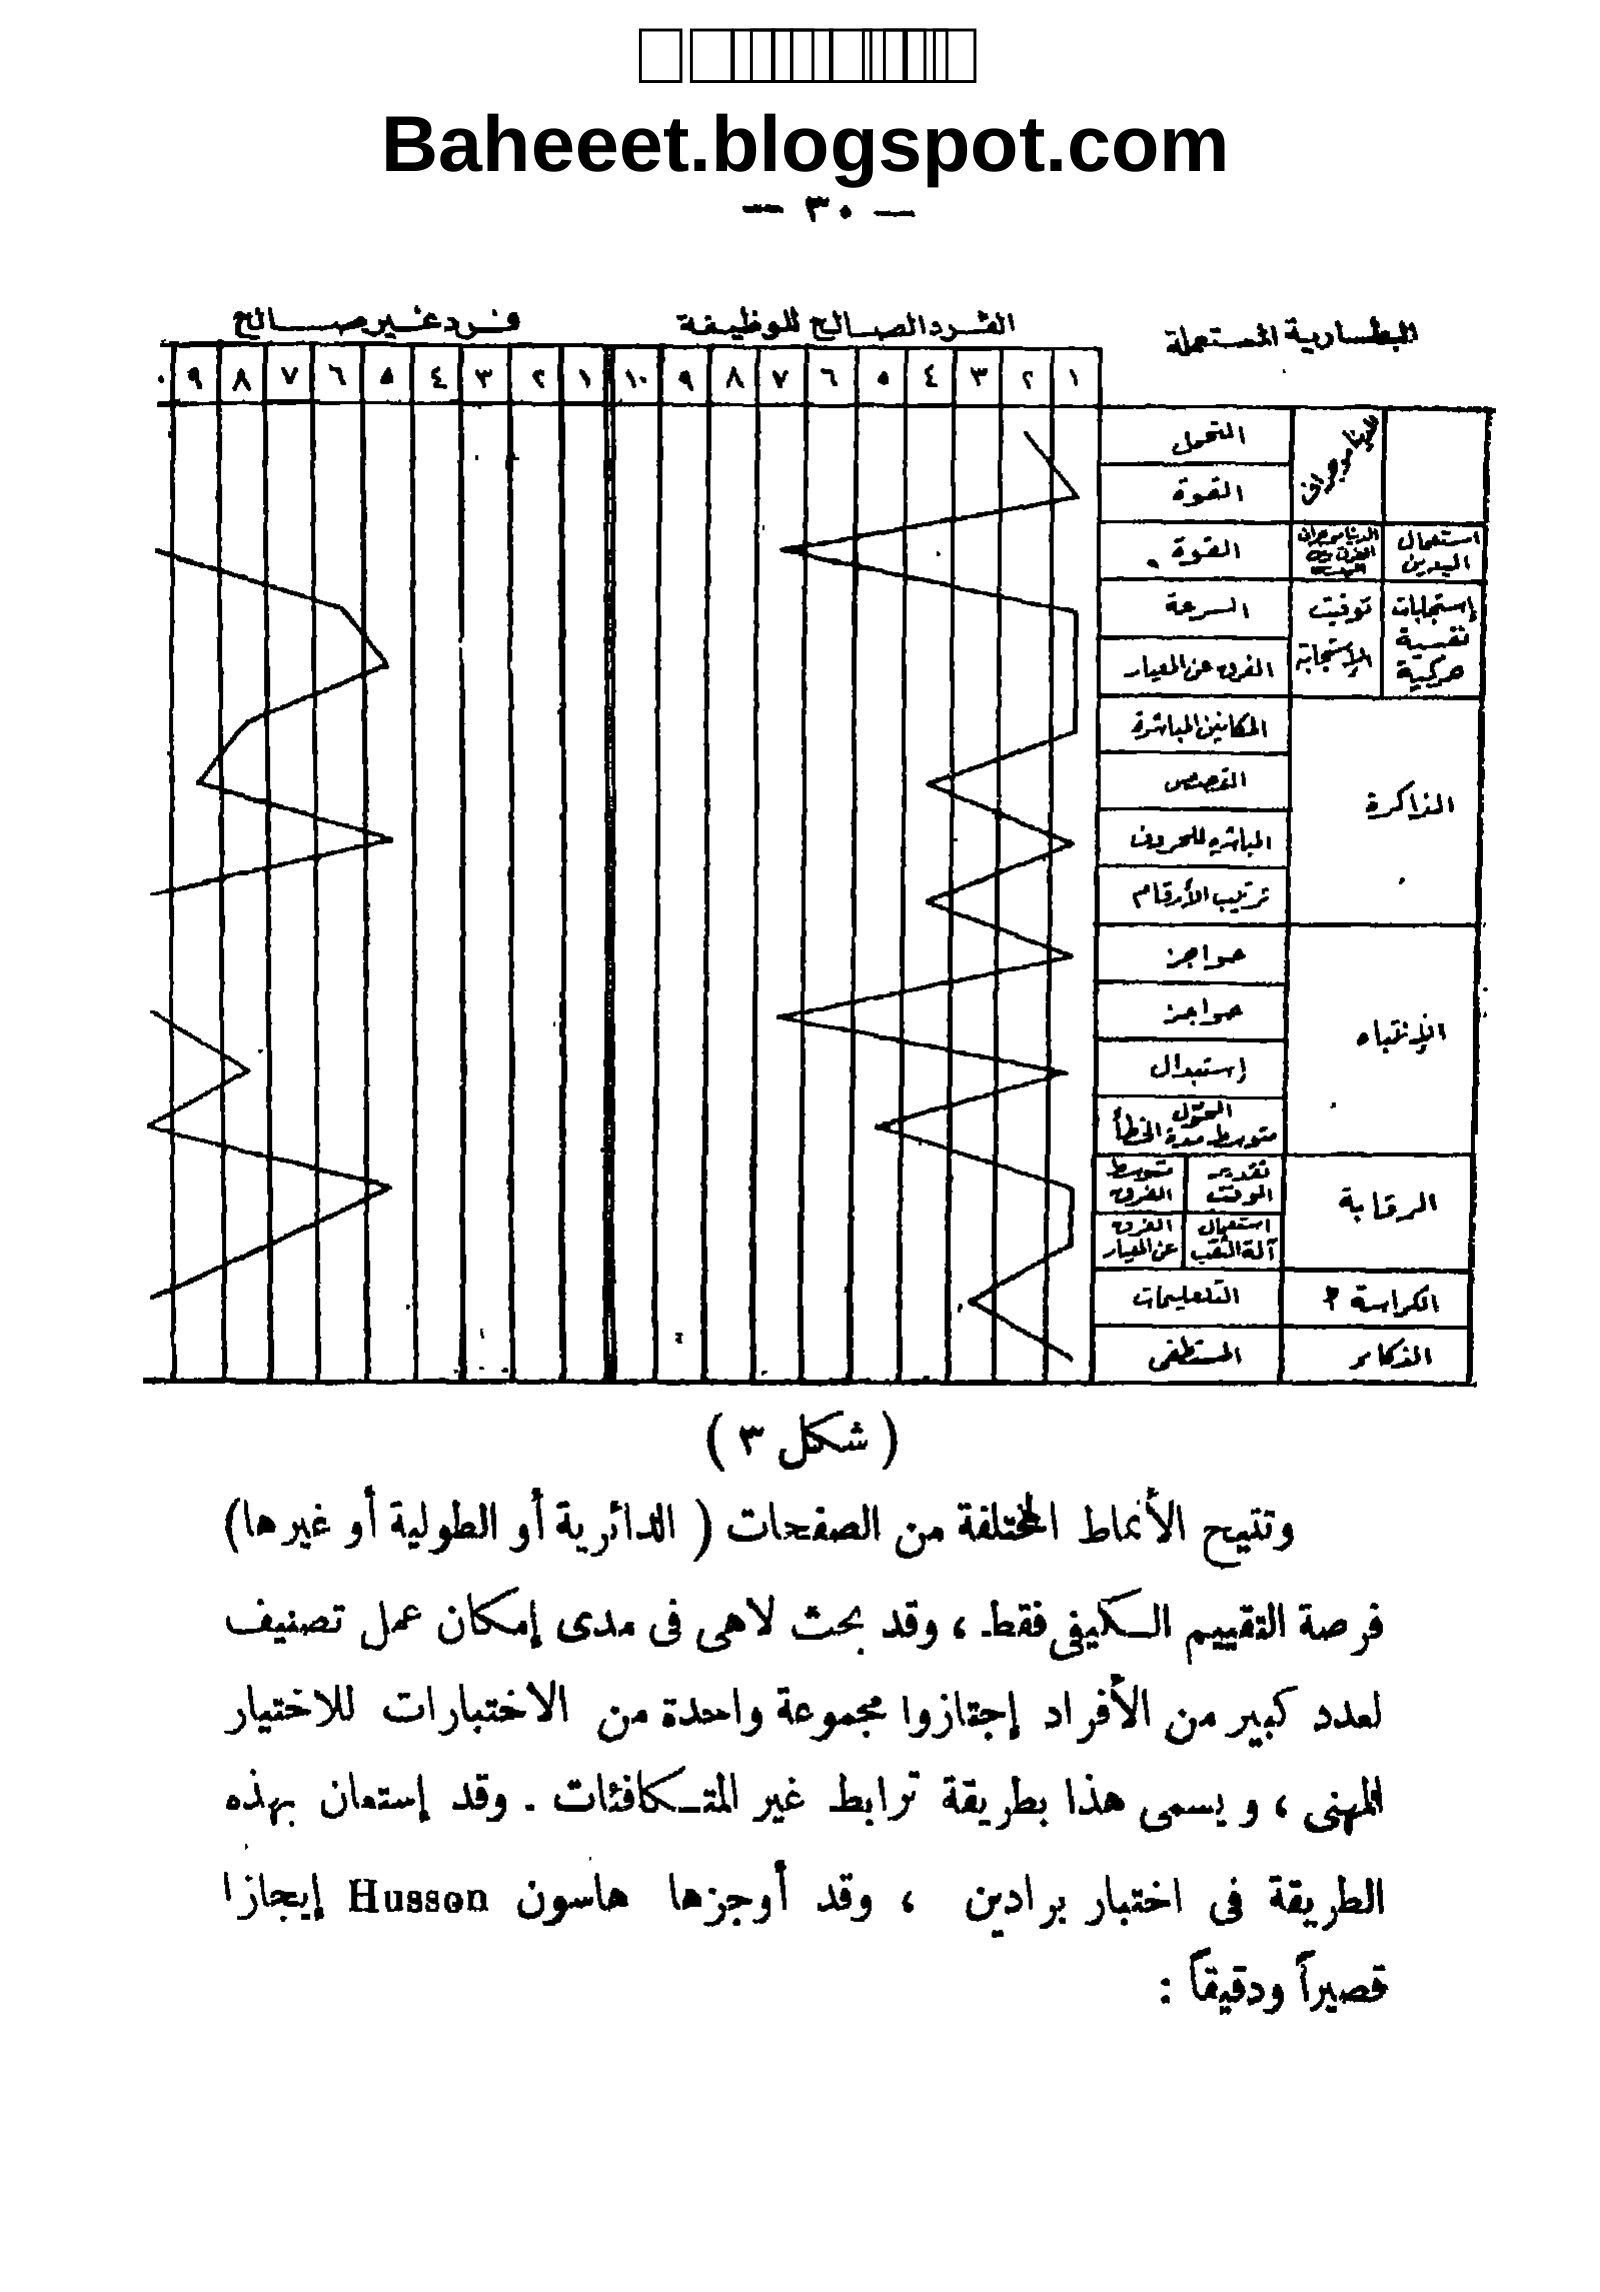 Baheeet.blogspot.com
— ٣٠ —
البطارية المستعملة
الفرد الصالح للوظيفة
فرد غير صالح
١ ٢ ٣ ٤ ٥ ٦ ٧ ٨ ٩ ١٠ ١ ٢ ٣ ٤ ٥ ٦ ٧ ٨ ٩ ٠
التحمل
القوة
استعمال اليدين
القوة
إستجابات نفسية حركية
توقيت الإستجابة
السرعة
الفرق عن المعيار
الذاكرة
المباشرة
القصص
المباشرة للحروف
ترتيب الأرقام
الإنتباه
حواجز
حواجز
إستبدال
متوسط مدة الخطأ
الرقابة
تقدير الوقت
متوسط الفرق
استعمال آلة الثقب
الفرق عن المعيار
الكراسة
التعليمات
الذكاء
( شكل ٣ )
وتتيح الأنماط المختلفة من الصفحات ( الدائرية أو الطولية أو غيرها)
فرصة التقييم الكيفى فقط ، وقد بحث لاهى فى مدى إمكان عمل تصنيف
لعدد كبير من الأفراد إجتازوا مجموعة واحدة من الاختبارات للاختيار
المهنى ، ويسمى هذا بطريقة ترابط غير المتكافئات . وقد إستعان بهذه
الطريقة فى اختبار برادين ، وقد أوجزها هاسون Husson إيجازا
قصيراً ودقيقاً :